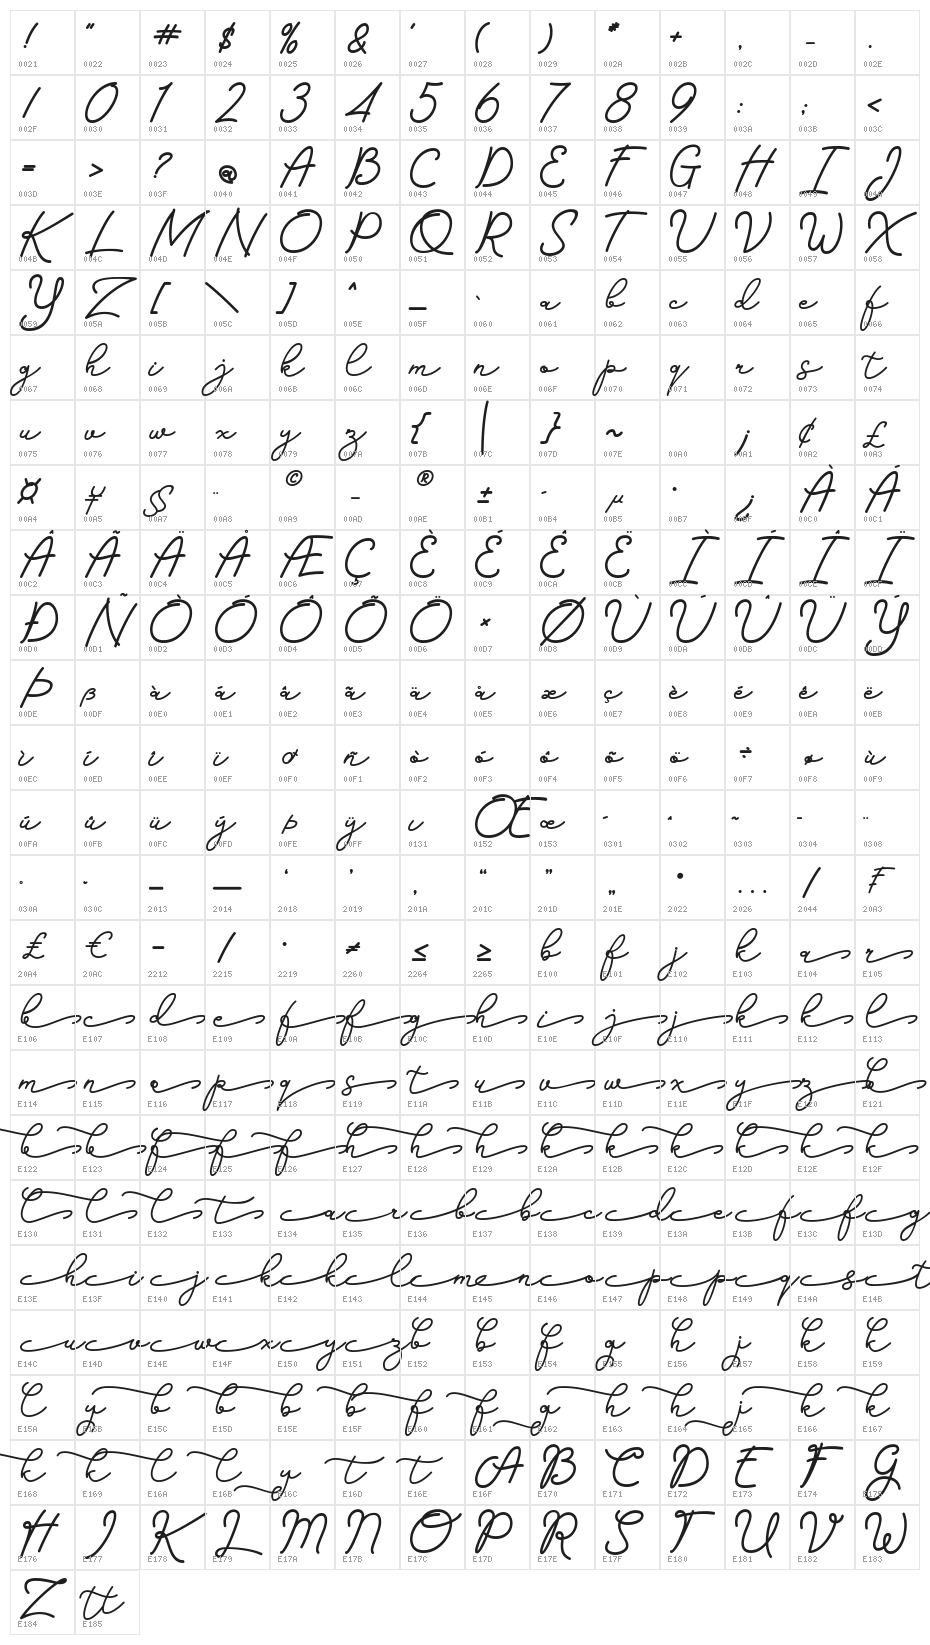 ! " # $ % & ' ( ) * + , - .
0021 0022 0023 0024 0025 0026 0027 0028 0029 002A 002B 002C 002D 002E
/ 0 1 2 3 4 5 6 7 8 9 : ; <
002F 0030 0031 0032 0033 0034 0035 0036 0037 0038 0039 003A 003B 003C
= > ? @ A B C D E F G H I J
003D 003E 003F 0040 0041 0042 0043 0044 0045 0046 0047 0048 0049 004A
K L M N O P Q R S T U V W X
004B 004C 004D 004E 004F 0050 0051 0052 0053 0054 0055 0056 0057 0058
Y Z [ \ ] ^ _ ` a b c d e f
0059 005A 005B 005C 005D 005E 005F 0060 0061 0062 0063 0064 0065 0066
g h i j k l m n o p q r s t
0067 0068 0069 006A 006B 006C 006D 006E 006F 0070 0071 0072 0073 0074
u v w x y z { | } ~ ¡ ¢ £
0075 0076 0077 0078 0079 007A 007B 007C 007D 007E 00A0 00A1 00A2 00A3
¤ ¥ § ¨ © - ® ± ´ µ · ¿ À Á
00A4 00A5 00A7 00A8 00A9 00AD 00AE 00B1 00B4 00B5 00B7 00BF 00C0 00C1
Â Ã Ä Å Æ Ç È É Ê Ë Ì Í Î Ï
00C2 00C3 00C4 00C5 00C6 00C7 00C8 00C9 00CA 00CB 00CC 00CD 00CE 00CF
Ð Ñ Ò Ó Ô Õ Ö × Ø Ù Ú Û Ü Ý
00D0 00D1 00D2 00D3 00D4 00D5 00D6 00D7 00D8 00D9 00DA 00DB 00DC 00DD
Þ ß à á â ã ä å æ ç è é ê ë
00DE 00DF 00E0 00E1 00E2 00E3 00E4 00E5 00E6 00E7 00E8 00E9 00EA 00EB
ì í î ï ð ñ ò ó ô õ ö ÷ ø ù
00EC 00ED 00EE 00EF 00F0 00F1 00F2 00F3 00F4 00F5 00F6 00F7 00F8 00F9
ú û ü ý þ ÿ ı Œ œ ́ ̂ ̃ ̄ ̈
00FA 00FB 00FC 00FD 00FE 00FF 0131 0152 0153 0301 0302 0303 0304 0308
̊ ̌ – — ‘ ’ ‚ “ ” „ • … ⁄ ₣
030A 030C 2013 2014 2018 2019 201A 201C 201D 201E 2022 2026 2044 20A3
₤ € − ∕ ∙ ≠ ≤ ≥ b f j k a r
20A4 20AC 2212 2215 2219 2260 2264 2265 E100 E101 E102 E103 E104 E105
b c d e f f g h i j j k k l
E106 E107 E108 E109 E10A E10B E10C E10D E10E E10F E110 E111 E112 E113
m n o p q s t u v w x y z b
E114 E115 E116 E117 E118 E119 E11A E11B E11C E11D E11E E11F E120 E121
b b f f f h h h k k k k k k
E122 E123 E124 E125 E126 E127 E128 E129 E12A E12B E12C E12D E12E E12F
l l l t a r b b c d e f f g
E130 E131 E132 E133 E134 E135 E136 E137 E138 E139 E13A E13B E13C E13D
h i j k k l m n o p p q s t
E13E E13F E140 E141 E142 E143 E144 E145 E146 E147 E148 E149 E14A E14B
u v w x y z b b f g h j k k
E14C E14D E14E E14F E150 E151 E152 E153 E154 E155 E156 E157 E158 E159
l y b b b b f f g h h j k k
E15A E15B E15C E15D E15E E15F E160 E161 E162 E163 E164 E165 E166 E167
k k l l y t t A B C D E F G
E168 E169 E16A E16B E16C E16D E16E E16F E170 E171 E172 E173 E174 E175
H I K L M N O P R S T U V W
E176 E177 E178 E179 E17A E17B E17C E17D E17E E17F E180 E181 E182 E183
Z tt
E184 E185